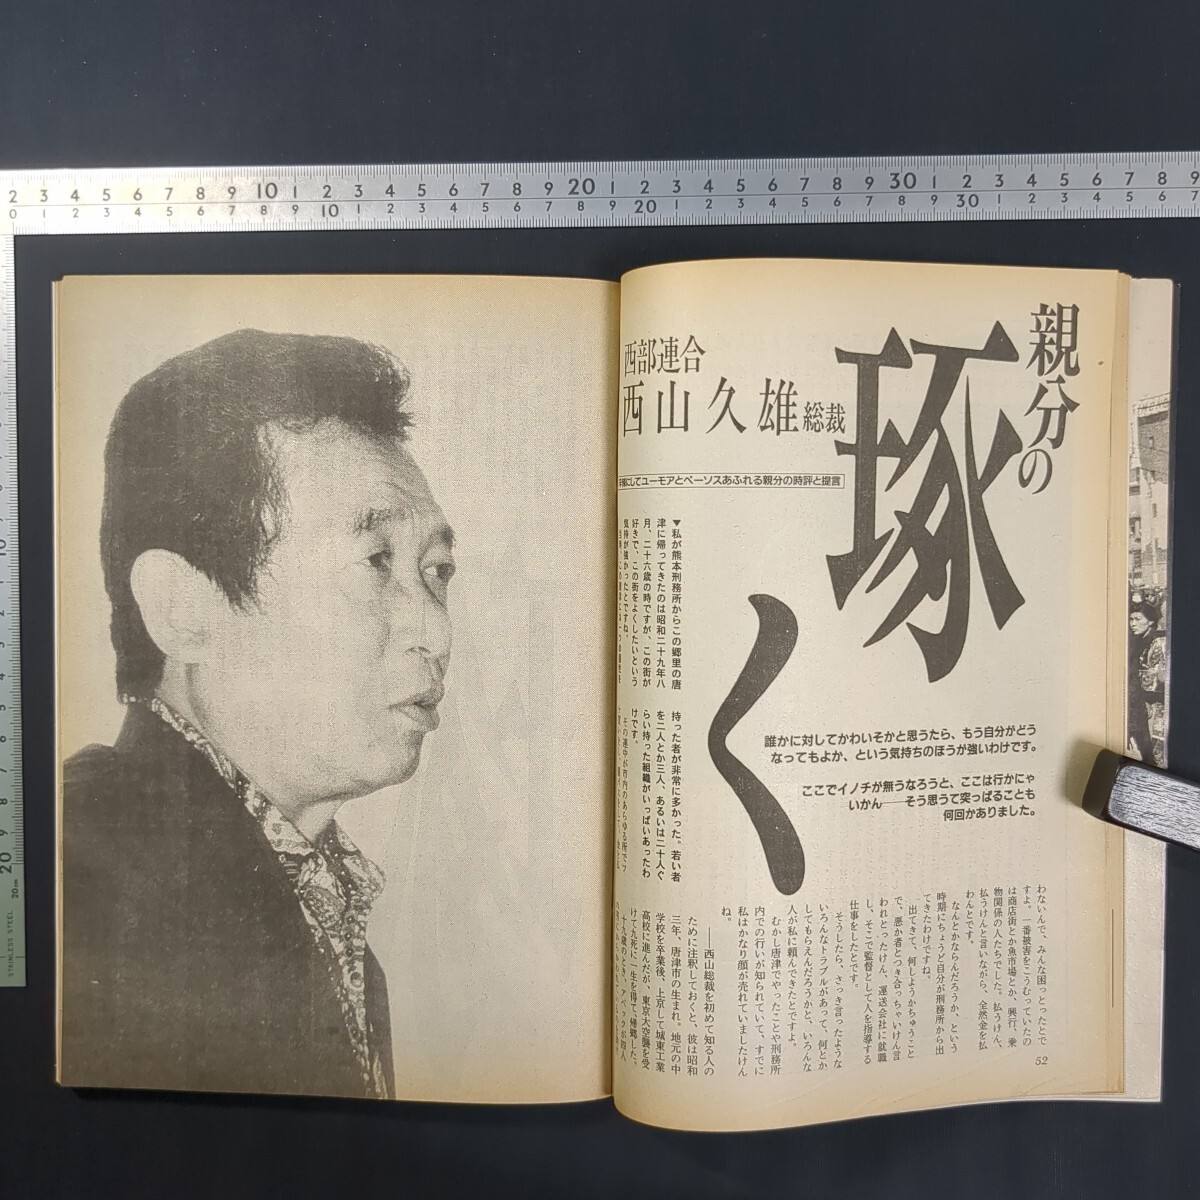 2 3 4 5 6 7 8 9 10 1 2 3 4 5 6 7 8 9 20 1 2 3 4 5 6 7 8 9 30 1 2 3 4 5 6 7 8 9
親分の
琢く
西部連合
西山久雄総裁
にしてユーモアとペーソスあふれる親分の時評と提言
誰かに対してかわいそかと思うたら、もう自分がどう
なってもよか、という気持ちのほうが強いわけです。
ここでイノチが無うなろうと、ここは行かにゃ
いかん――そう思うて突っぱることも
何回かありました。
▼私が熊本刑務所からこの郷里の唐
津に帰ってきたのは昭和二十九年八
月、二十六歳の時ですが、この街が
好きで、この街をよくしたいという
気持が強かったとですね。
持った者が非常に多かった。若い者
を二人とか三人、あるいは二十人ぐ
らい持った組織がいっぱいあったわ
けです。
その連中が市内のあらゆる所でツ
わないんで、みんな困っとったとで
すよ。一番被害をこうむっていたの
は商店街とか魚市場とか、興行、乗
物関係の人たちでした。払うけん、
払うけんと言いながら、全然金を払
わんとです。
なんとかならんだろうか、という
時期にちょうど自分が刑務所から出
てきたわけですね。
出てきて、何しようかちゅうこと
で、悪か者とつき合っちゃいけん言
われとったけん、運送会社に就職
し、そこで監督として人を指導する
仕事をしたとです。
そうしたら、さっき言ったような
いろんなトラブルがあって、何とか
してもらえんだろうかと、いろんな
人が私に頼んできたとですよ。
むかし唐津でやったことや刑務所
内での行いが知られていて、すでに
私はかなり顔が売れていましたけん
ね。
――西山総裁を初めて知る人の
ために注釈しておくと、彼は昭和
三年、唐津市の生まれ。地元の中
学校を卒業後、上京して城東工業
高校に進んだが、東京大空襲を受
けて九死に一生を得て、帰郷した。
十九歳のとき、アベックが四人
52
20cm
STAINLESS STEEL